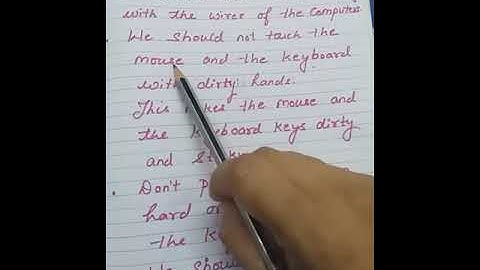 with the wires of the computers
We should not touch the
mouse and the keyboard
with dirty hands.
This makes the mouse and
the keyboard keys dirty
and
Don't
hard
the
We